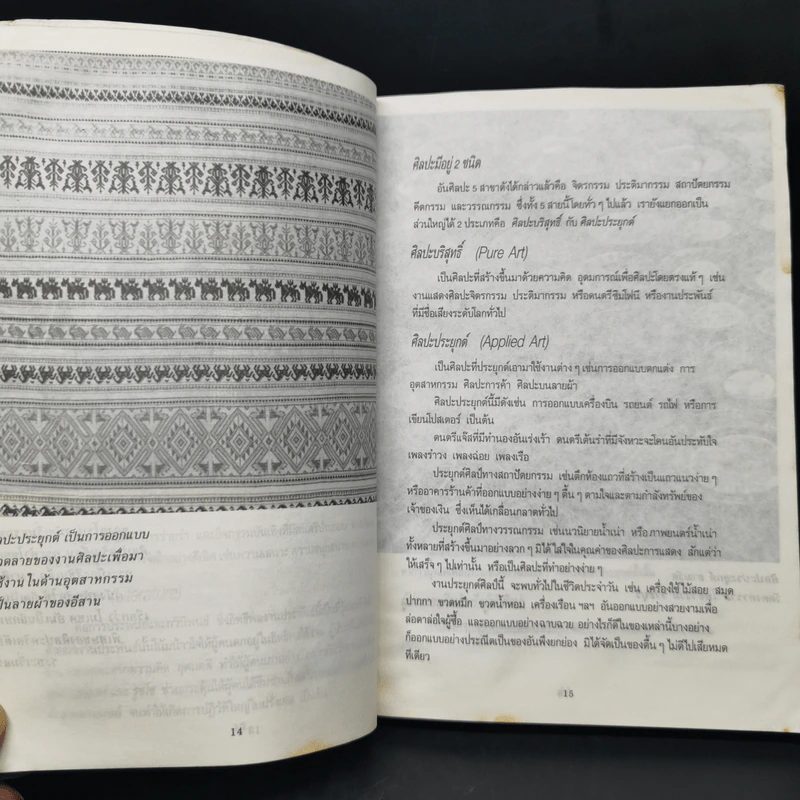 ศิลปะประยุกต์ เป็นการออกแบบ
ลวดลายของงานศิลปะเพื่อมา
ใช้งานในด้านอุตสาหกรรม
เป็นลายผ้าของอีสาน
14
ศิลปะมีอยู่ 2 ชนิด
อันศิลปะ 5 สาขาดังได้กล่าวแล้วคือ จิตรกรรม ประติมากรรม สถาปัตยกรรม
คีตกรรม และวรรณกรรม ซึ่งทั้ง 5 สายนี้โดยทั่ว ๆ ไปแล้ว เรายังแยกออกเป็น
ส่วนใหญ่ได้ 2 ประเภทคือ ศิลปะบริสุทธิ์ กับ ศิลปะประยุกต์
ศิลปะบริสุทธิ์ (Pure Art)
เป็นศิลปะที่สร้างขึ้นมาด้วยความคิด อุดมการณ์เพื่อศิลปะโดยตรงแท้ ๆ เช่น
งานแสดงศิลปะจิตรกรรม ประติมากรรม หรือดนตรีซิมโฟนี หรืองานประพันธ์
ที่มีชื่อเสียงระดับโลกทั่วไป
ศิลปะประยุกต์ (Applied Art)
เป็นศิลปะที่ประยุกต์เอามาใช้งานต่าง ๆ เช่นการออกแบบตกแต่ง การ
อุตสาหกรรม ศิลปะการค้า ศิลปะบนลายผ้า
ศิลปะประยุกต์นี้มีดังเช่น การออกแบบเครื่องบิน รถยนต์ รถไฟ หรือการ
เขียนโปสเตอร์ เป็นต้น
ดนตรีแจ๊สที่มีทำนองอันเร่งเร้า ดนตรีเต้นรำที่มีจังหวะจะโคนอันประทับใจ
เพลงรำวง เพลงฉ่อย เพลงเรือ
ประยุกต์ศิลป์ทางสถาปัตยกรรม เช่นตึกห้องแถวที่สร้างเป็นแถวแนวง่าย ๆ
หรืออาคารร้านค้าที่ออกแบบอย่างง่าย ๆ ตื้น ๆ ตามใจและตามกำลังทรัพย์ของ
เจ้าของเงิน ซึ่งเห็นได้เกลื่อนกลาดทั่วไป
ประยุกต์ศิลป์ทางวรรณกรรม เช่นนวนิยายน้ำเน่า หรือภาพยนตร์น้ำเน่า
ทั้งหลายที่สร้างขึ้นมาอย่างลวก ๆ มิได้ใส่ใจในคุณค่าของศิลปะการแสดง สักแต่ว่า
ให้เสร็จ ๆ ไปเท่านั้น หรือเป็นศิลปะที่ทำอย่างง่าย ๆ
งานประยุกต์ศิลป์นี้ จะพบทั่วไปในชีวิตประจำวัน เช่น เครื่องใช้ไม้สอย สมุด
ปากกา ขวดหมึก ขวดน้ำหอม เครื่องเรือน ฯลฯ อันออกแบบอย่างสวยงามเพื่อ
ล่อตาล่อใจผู้ซื้อ และออกแบบอย่างฉาบฉวย อย่างไรก็ดีในของเหล่านี้บางอย่าง
ก็ออกแบบอย่างประณีตเป็นของอันพึงยกย่อง มิได้จัดเป็นของตื้น ๆ ไม่ดีไปเสียหมด
ทีเดียว
15